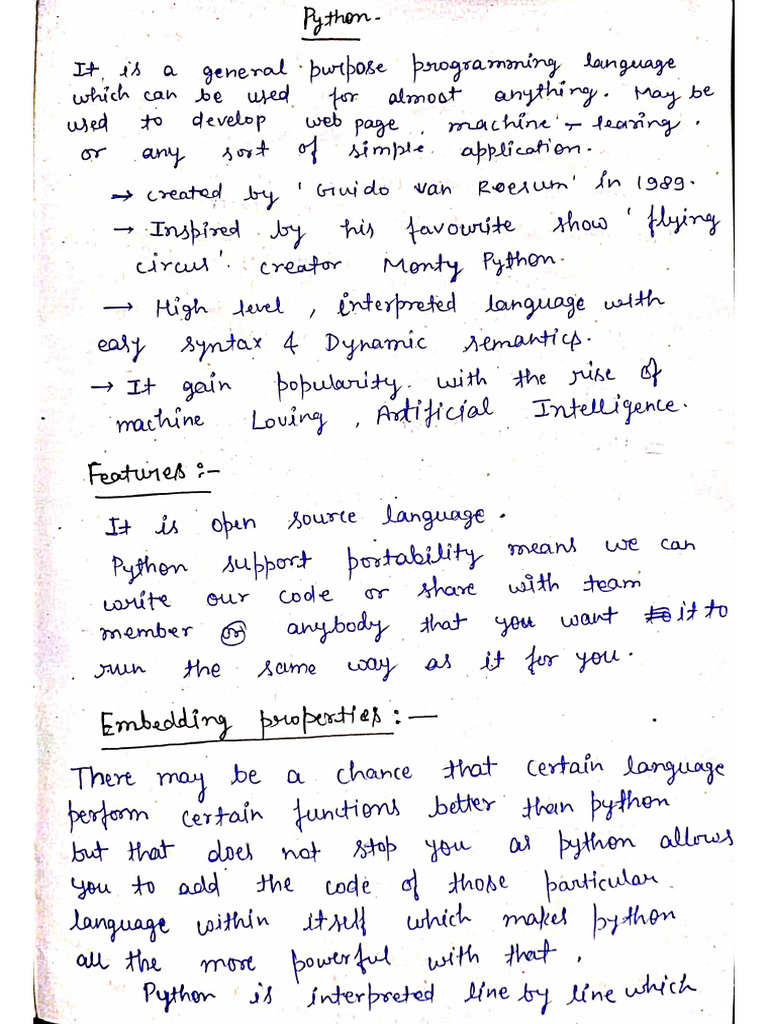 Python.
It is a general purpose programming language
which can be used for almost anything. May be
used to develop web page, machine - learing.
or any sort of simple application.
→ created by 'Guido van Roesum' in 1989.
→ Inspired by his favourite show 'flying
circus'. creator Monty Python.
→ High level, interpreted language with
easy syntax & Dynamic semantics.
→ It gain popularity. with the rise of
machine Loving, Artificial Intelligence.
Features :-
It is open source language.
Python support portability means we can
write our code or share with team
member or anybody that you want it to
run the same way as it for you.
Embedding properties :-
There may be a chance that certain language
perform certain functions better than python
but that does not stop you as python allows
you to add the code of those particular
language within itself which makes python
all the more powerful with that.
Python is interpreted line by line which